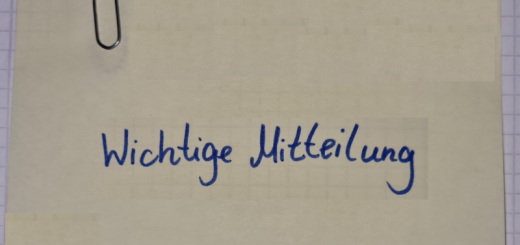 Wichtige Mitteilung